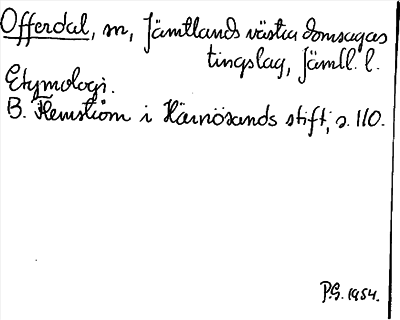 Offerdal, sn, Jämtlands västra domsagas
tingslag, Jämtl. l.
Etymologi.
B. Flemström i Härnösands stift, s. 110.
P.G. 1954.